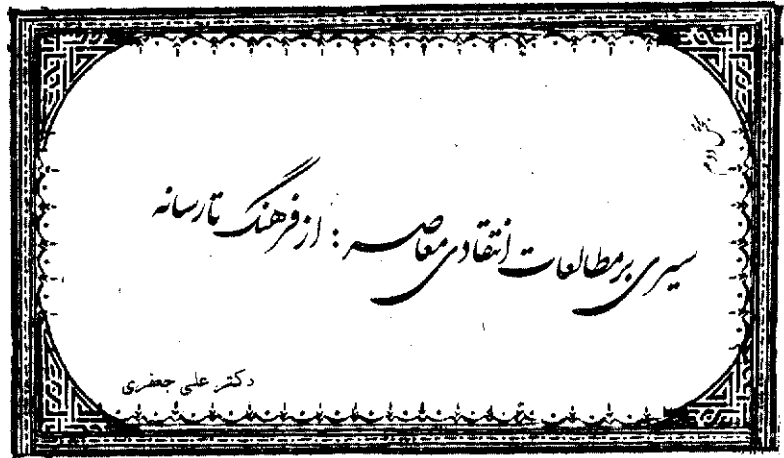 بخش دوم
سیری بر مطالعات انتقادی معاصر: از فرهنگ تا رسانه
دکتر علی جعفری